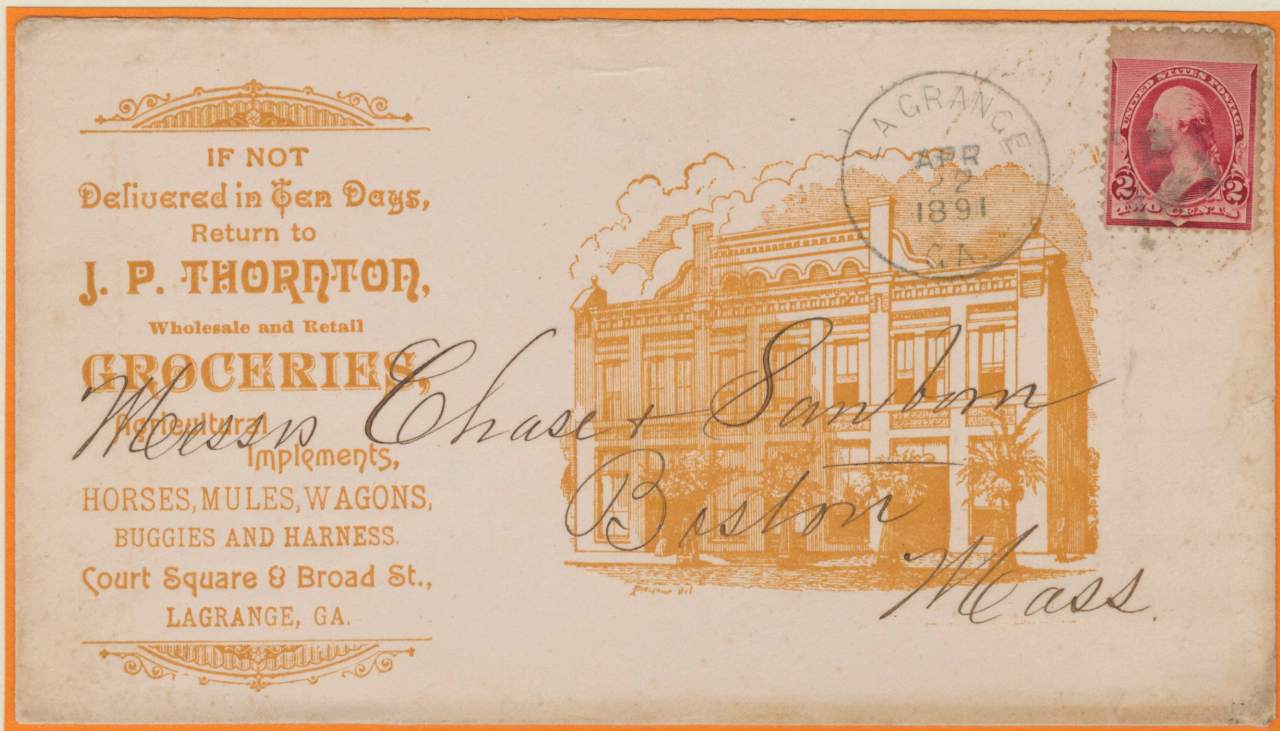 IF NOT
Delivered in Ten Days,
Return to
J. P. THORNTON,
Wholesale and Retail
GROCERIES,
Agricultural
Implements,
HORSES, MULES, WAGONS,
BUGGIES AND HARNESS.
Court Square & Broad St.,
LAGRANGE, GA.
LAGRANGE
APR
22
1891
GA.
UNITED STATES POSTAGE
2 2
TWO CENTS
Messrs Chase & Sanborn
Boston
Mass.